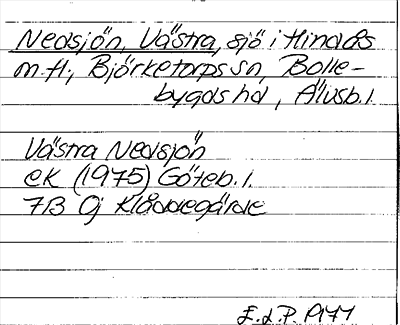 Nedsjön, Västra, sjö i Hindås
m fl, Björketorps sn, Bolle-
bygds hd, Älvsb. l.
Västra Nedsjön
ek (1975) Göteb. l.
7B 0j Klåddegärde
E.d.P. 1977